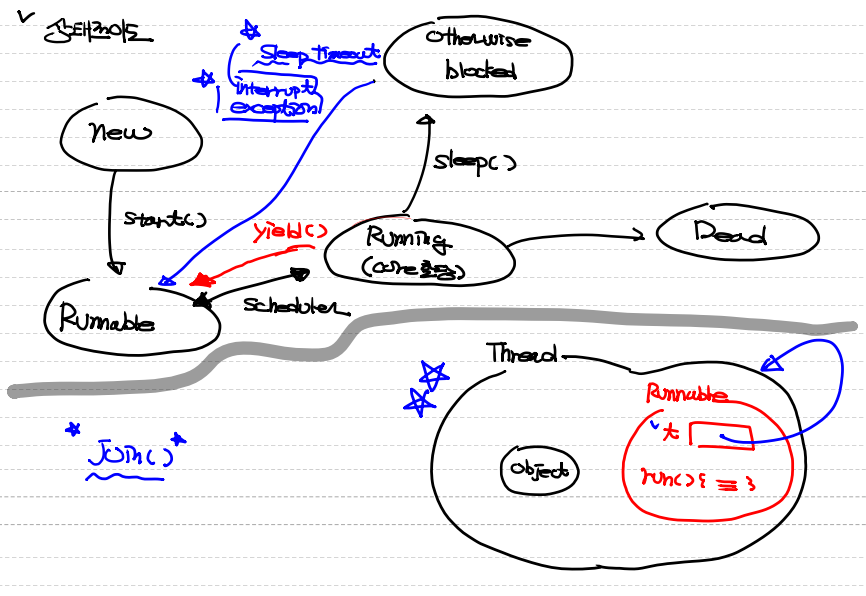 상태전이도
Sleep Timeout
interrupt
exception
otherwise
blocked
new
sleep()
start()
yield()
Running
(core 할당)
Dead
Runnable
scheduler
Thread
Runnable
t
object
run(){ }
Join()